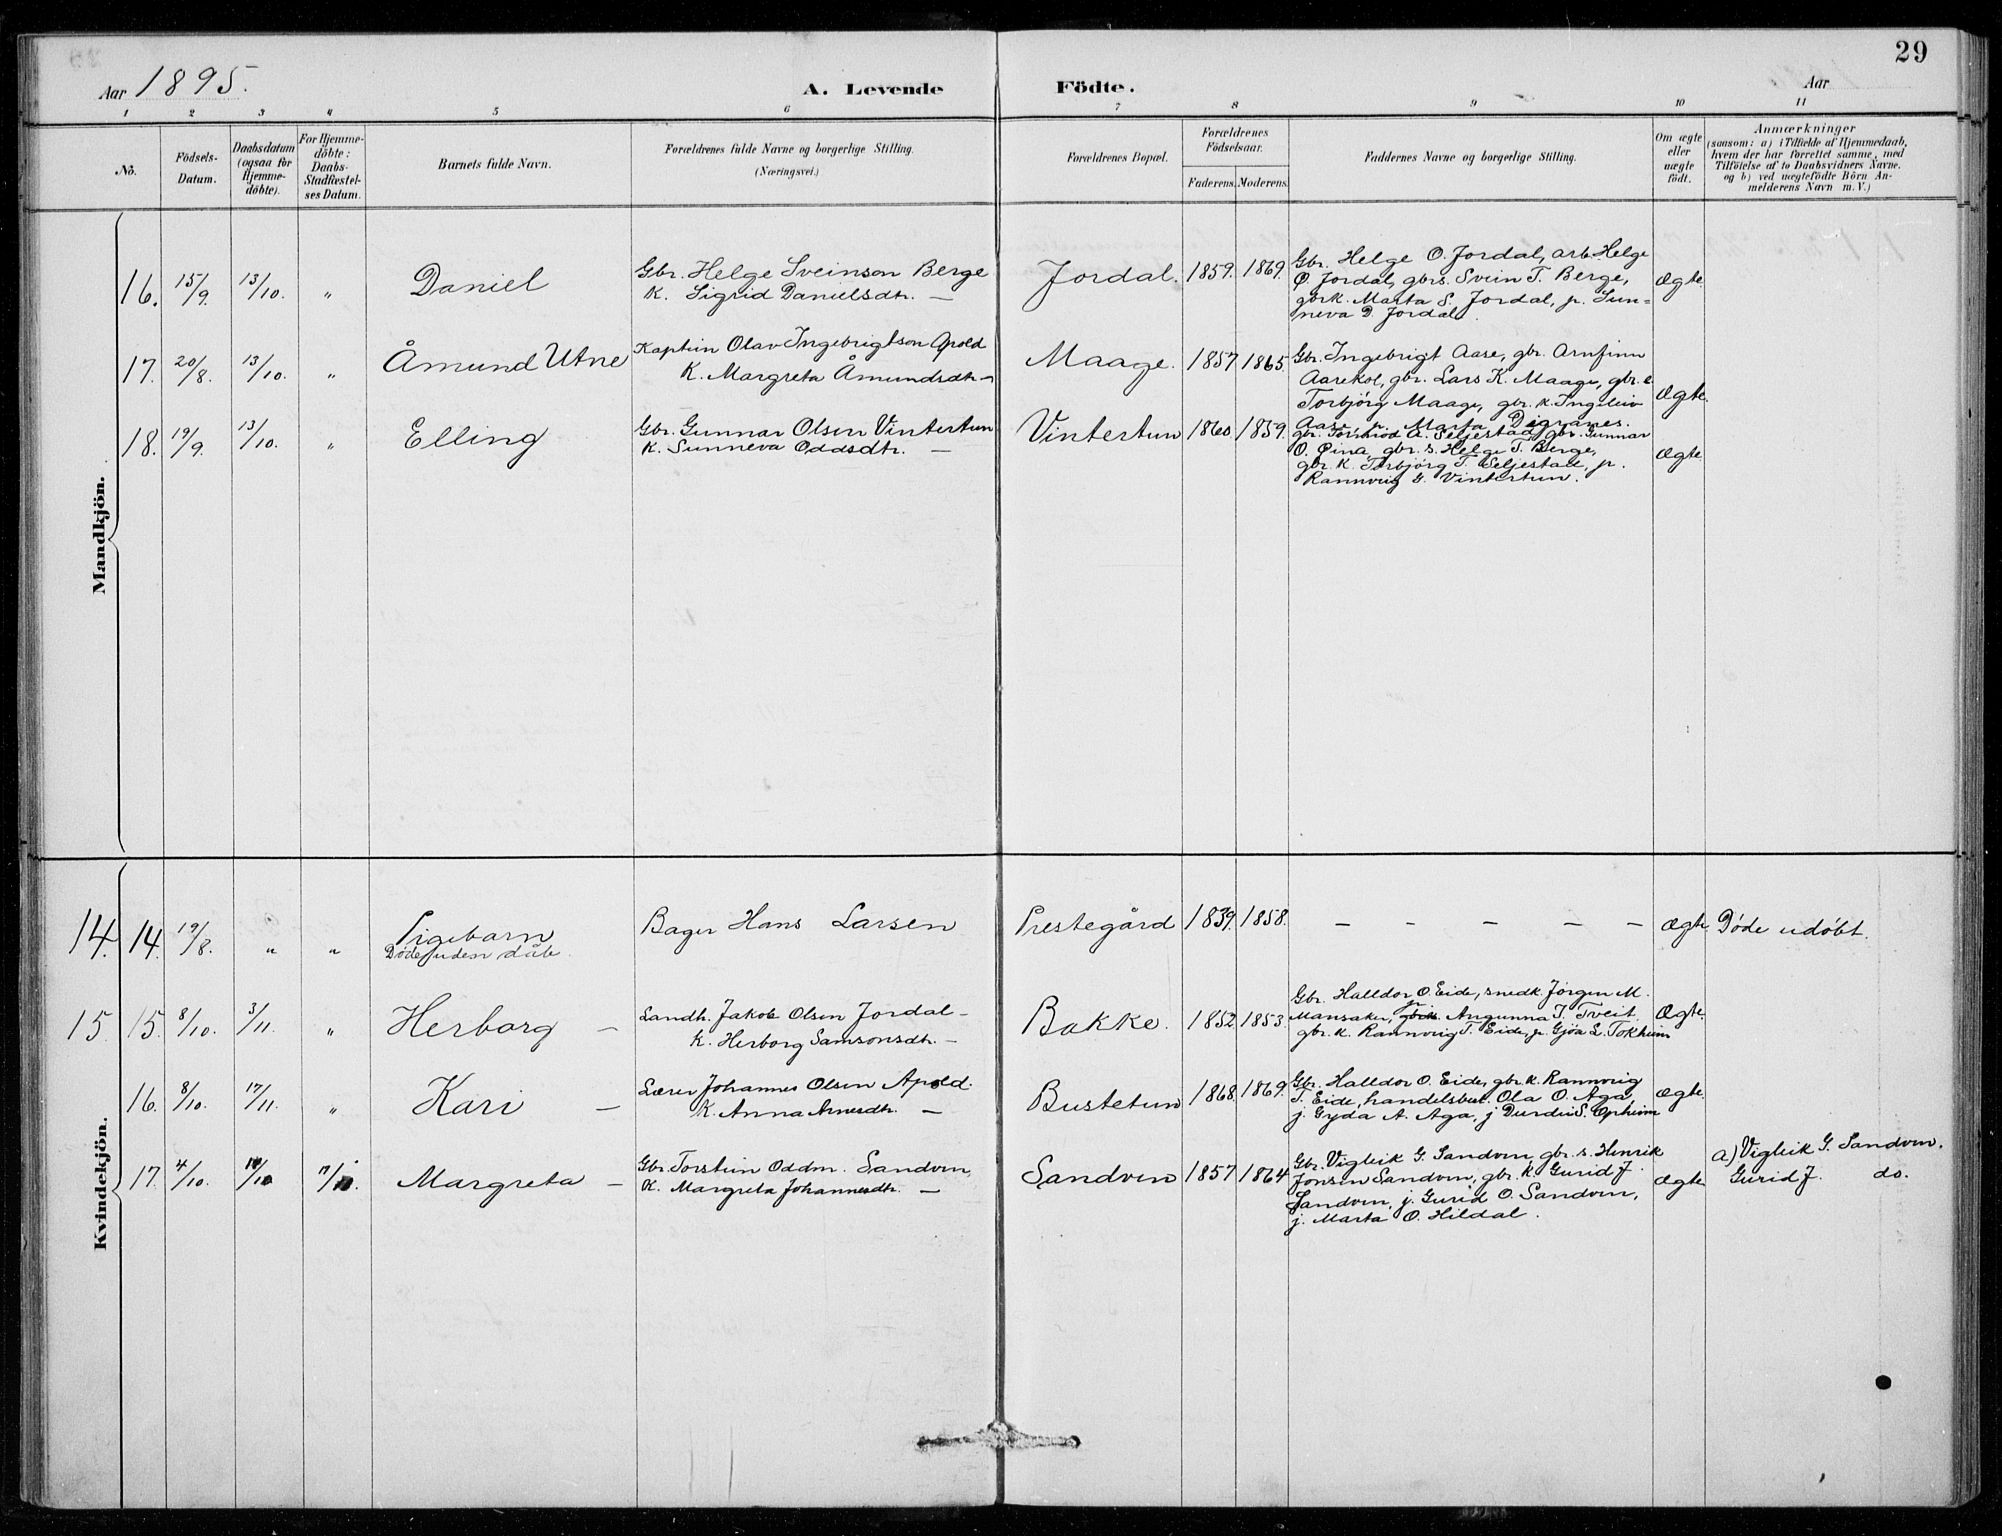 29
Aar 1895.
A. Levende Födte.
Aar
1 2 3 4 5 6 7 8 9 10 11
No.
Födsels-Datum.
Daabsdatum (ogsaa for Hjemme-döbte).
For Hjemme-döbte: Daabs-Stadfæstel-ses Datum.
Barnets fulde Navn.
Forældrenes fulde Navne og borgerlige Stilling.
(Næringsvei.)
Forældrenes Bopæl.
Forældrenes Födselsaar.
Faderens. Moderens.
Faddernes Navne og borgerlige Stilling.
Om ægte eller uægte født.
Anmærkninger
(saasom: a) i Tilfælde af Hjemmedaab,
hvem der har forrettet samme, med
Tilföielse af to Daabsvidners Navne.
og b) ved uægtefödte Börn An-
melderens Navn m. V.)
Mandkjön.
16. 15/9. 13/10. " Daniel
Gbr. Helge Sveinson Berge
K. Sigrid Danielsdtr. —
Jordal. 1859. 1869.
Gbr. Helge O. Jordal, arb. Helge
Ø. Jordal, gbrs. Svein T. Berge,
gbrk. Marta S. Jordal, p. Sun=
neva D. Jordal.
Ægte.
17. 20/8. 13/10. " Åmund Utne
Kaptein Olav Ingebrigtson Apold
K. Margreta Åmundsdtr —
Maage. 1857 1865.
Gbr. Ingebrigt Aase, gbr. Arnfinn
Aarekol, gbr. Lars K. Maage, gbr. e.
Torbjörg Maage, gbr. K. Ingeleiv
Aase, p. Marta Digranes.
Ægte.
18. 19/9. 13/10. " Elling
Gbr. Gunnar Olsen Vintertun
K. Sunneva Oddsdtr. —
Vintertun 1860 1859.
gbr. Tormod A. Seljestad, gbr. Gunnar
O. Øina, gbr. s. Helge T. Berge,
gbr. K. Torbjörg T. Seljestad, p.
Rannveig G. Vintertun.
Ægte.
Kvindekjön.
14. 14. 19/8. " " Pigebarn
Døde uden dåb.
Bager Hans Larsen
Prestegård 1839. 1858. — — — — —
Ægte Døde udøbt.
15 15. 8/10. 3/11. " Herborg —
Landh. Jakob Olsen Jordal —
K. Herborg Samsonsdtr. —
Bakke. 1852 1853.
Gbr. Halldor O. Eide, snedk. Jørgen M.
Mansaker, p. Angunna T. Tveit.
gbr. K. Rannveig T. Eide, p. Gjøa L. Tokheim
Ægte.
16. 8/10. 17/11. " Kari —
Lærer Johannes Olsen Apold.
K. Anna Arnesdtr. —
Bustetun 1868. 1869.
Gbr. Halldor O. Eide, gbr. K. Rannveig
T. Eide, handelsbet. Ola O. Aga,
j. Gyda A. Aga, j. Durdei S. Opheim
Ægte.
17. 4/10. Margreta —
Gbr. Torstein Oddm. Sandven,
K. Margreta Johannesdtr. —
Sandven 1857 1864
Gbr. Vigleik G. Sandven, gbr. s. Henrik
Jonsen Sandven, gbr. K. Gurid J.
Sandven, j. Gurid O. Sandven,
j. Marta O. Hildal.
Ægte
a) Vigleik G. Sandven.
Gurid J. do.